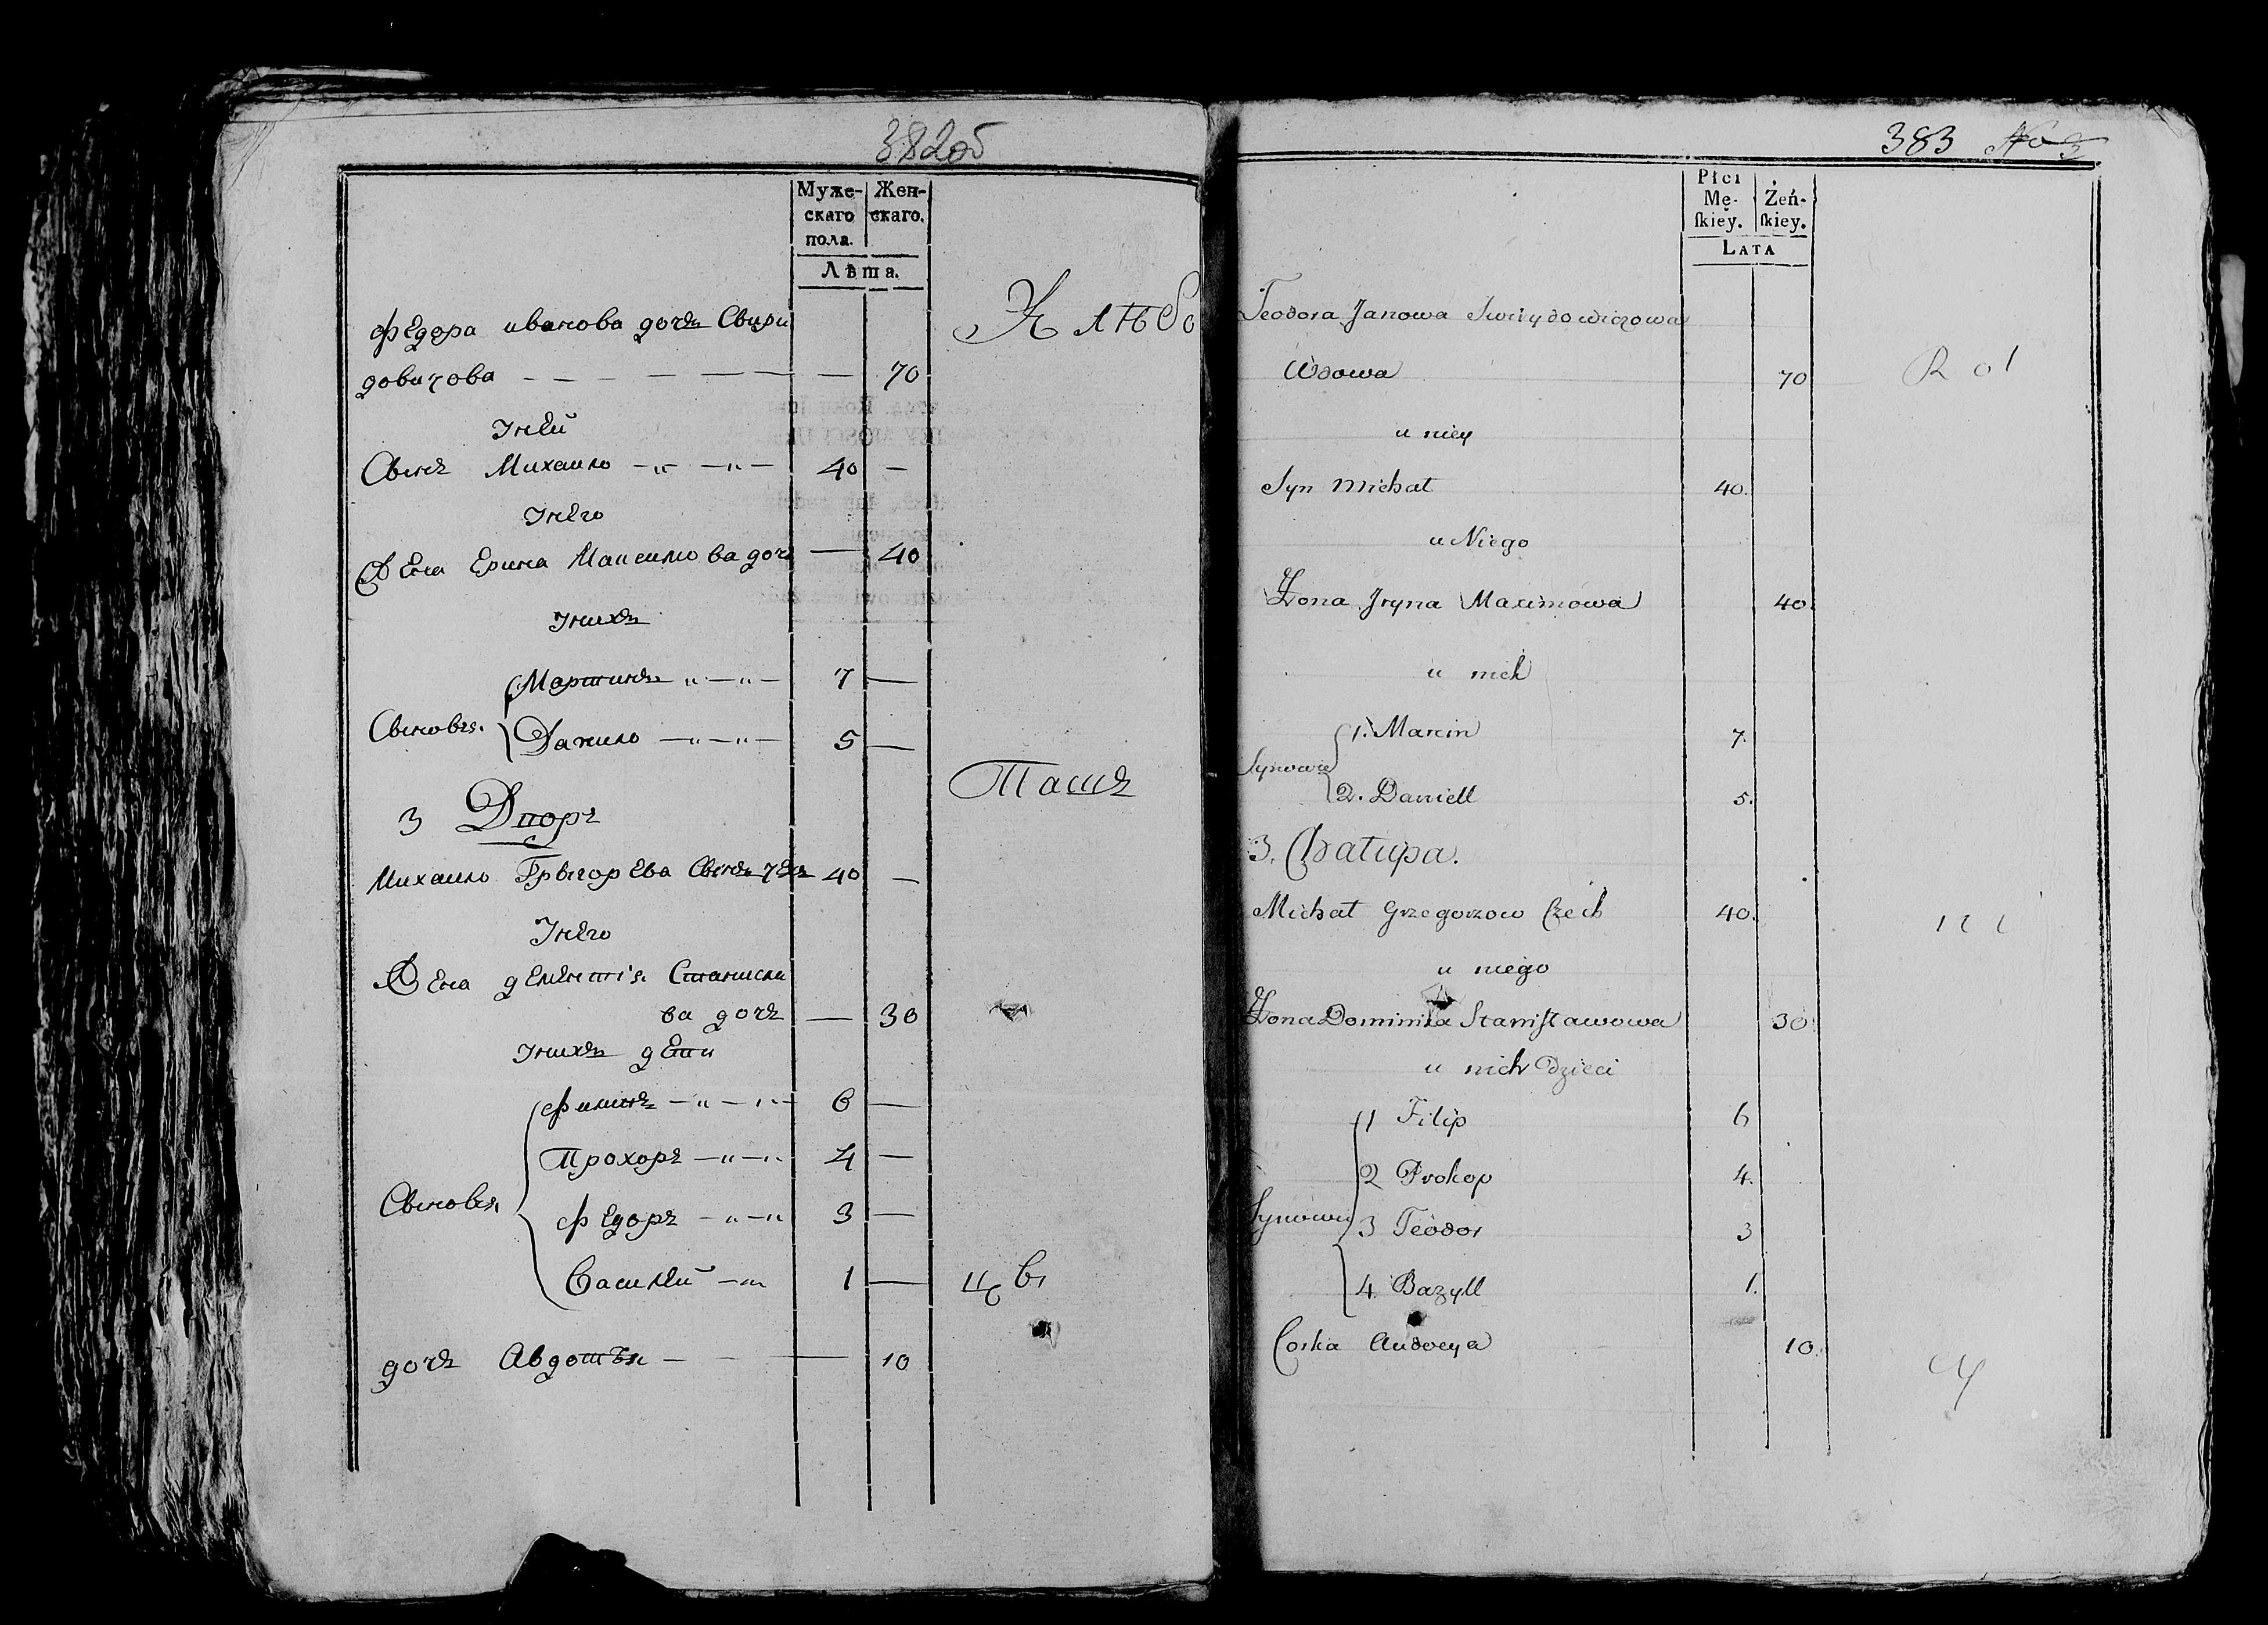 382об
Муже-
скаго
пола.
Жен-
скаго.
Лѣта.
Федора иванова дочъ Свири
довичова 70
Унеи
Сынъ Михаило 40
Унего
Жена Ерина Максимова дочъ 40
Унихъ
Сыновья
Мартинъ 7
Данило 5
3 Дворъ
Михаило Грыгорева Сынъ Чехъ 40
Унего
Жена Станисла
ва дочъ 30
Унихъ дети
Сыновья
Филипъ 6
Прохоръ 4
Федоръ 3
Василий 1
дочъ Авдотья 10
383 No 3
Płci
Mę-
skiey.
Żeń-
skiey.
LATA
Teodora Janowa Swirydowiczowa
Wdowa 70
u niey
Syn Michał 40.
u Niego
Żona Jryna Maximowa 40.
u nich
Synowie
1. Marcin 7.
2. Daniell 5.
3. Chałupa.
Michał Grzegorzow Czech 40.
u niego
Żona Dominika Stanisławowa 30
u nich Dzieci
Synowie
1 Filip 6
2 Prokop 4.
3 Teodor 3
4. Bazyll 1.
Corka Audocya 10.